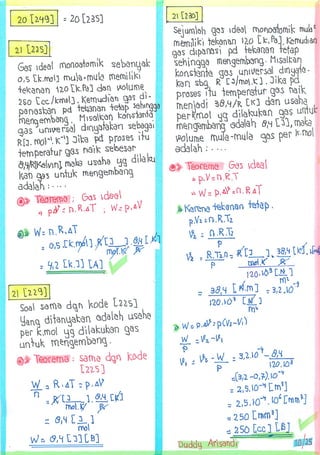 20 [249] = 20 [235]
21 [225]
Gas ideal monoatomik sebanyak
0,5 [k.mol] mula-mula memiliki
tekanan 120 [k.Pa] dan volume
250 [cc/kmol]. Kemudian gas di-
panaskan pd tekanan tetap sehingga
mengembang. Misalkan konstanta
gas universal dinyatakan sebagai
R[J.mol⁻¹.K⁻¹] Jika pd proses itu
temperatur gas naik sebesar
8,4/R[Kelvin] maka usaha yg dilaku
kan gas untuk mengembang
adalah : ....
Teorema : Gas ideal
p.ΔV = n.R.ΔT , W = p.ΔV
W = n.R.ΔT
= 0,5 [k.mol] R [J/mol.K] 8,4/R [K]
= 4,2 [k.J] [A]
21 [229]
Soal sama dgn kode [225]
Yang ditanyakan adalah usaha
per k.mol yg dilakukan gas
untuk mengembang.
Teorema : sama dgn kode
[225]
W/n = R.ΔT = p.ΔV
= R [J/mol.K] 8,4/R [K]
= 8,4 [J/mol]
W = 8,4 [J] [B]
21 [230]
Sejumlah gas ideal monoatomik mula²
memiliki tekanan 120 [k.Pa]. Kemudian
gas dipanasi pd tekanan tetap
sehingga mengembang. Misalkan
konstanta gas universal dinyata-
kan sbg R [J/mol.K]. Jika pd
proses itu temperatur gas naik
menjadi 38,4/R [K] dan usaha
per k.mol yg dilakukan gas untuk
mengembang adalah 8,4 [J], maka
volume mula-mula gas per k.mol
adalah : ....
Teorema Gas ideal
p.V = n.R.T
W = p.ΔV = n.R.ΔT
Karena tekanan tetap.
p.V₂ = n.R.T₂
V₂ = n.R.T₂/p
W = p.ΔV = p(V₂-V₁)
W/p = V₂ - V₁
V₁ = V₂ - W/p = 3,2.10⁻⁴ - 8,4/120.10³
= (3,2-0,7).10⁻⁴
= 2,5.10⁻⁴ [m³]
= 250 [cc] [B]
Duddy Arisandi